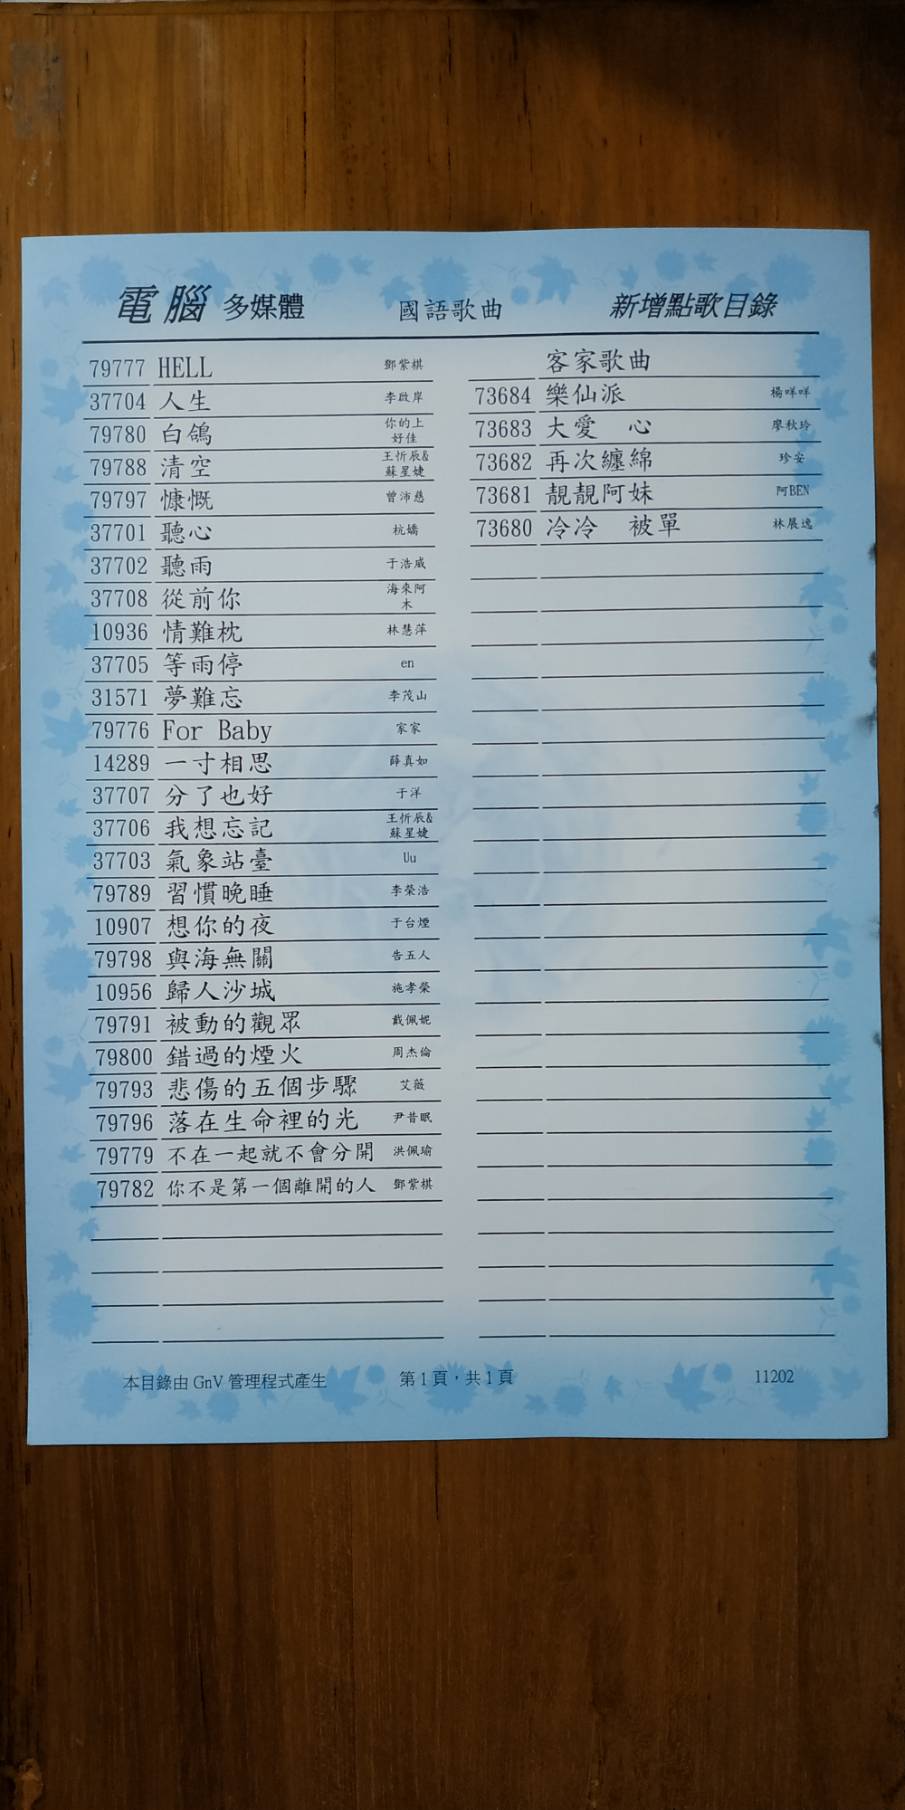 電腦 多媒體 國語歌曲 新增點歌目錄
79777 HELL 鄧紫棋
37704 人生 李啟岸
79780 白鴿 你的上好佳
79788 清空 王忻辰&蘇星婕
79797 慷慨 曾沛慈
37701 聽心 杭嬌
37702 聽雨 于浩威
37708 從前你 海來阿木
10936 情難枕 林慧萍
37705 等雨停 en
31571 夢難忘 李茂山
79776 For Baby 家家
14289 一寸相思 薛真如
37707 分了也好 于洋
37706 我想忘記 王忻辰&蘇星婕
37703 氣象站臺 Uu
79789 習慣晚睡 李榮浩
10907 想你的夜 于台煙
79798 與海無關 告五人
10956 歸人沙城 施孝榮
79791 被動的觀眾 戴佩妮
79800 錯過的煙火 周杰倫
79793 悲傷的五個步驟 艾薇
79796 落在生命裡的光 尹昔眠
79779 不在一起就不會分開 洪佩瑜
79782 你不是第一個離開的人 鄧紫棋
客家歌曲
73684 樂仙派 楊咩咩
73683 大愛 心 廖秋玲
73682 再次纏綿 珍安
73681 靚靚阿妹 阿BEN
73680 冷冷 被單 林展逸
本目錄由 GnV 管理程式產生 第1頁，共1頁 11202